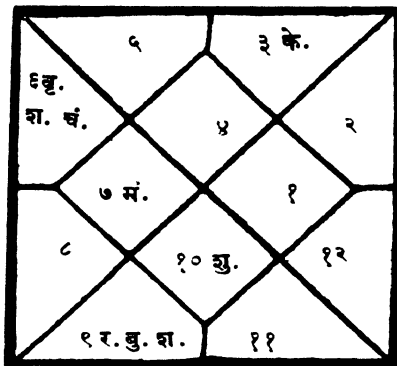 ५
३ के.
६वृ.
श. चं.
४
२
७ मं.
१
८
१० शु.
१२
९ र. बु. श.
११